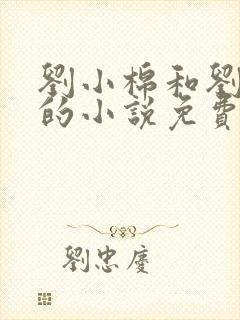 劉小棉和劉
的小說免費
劉忠慶